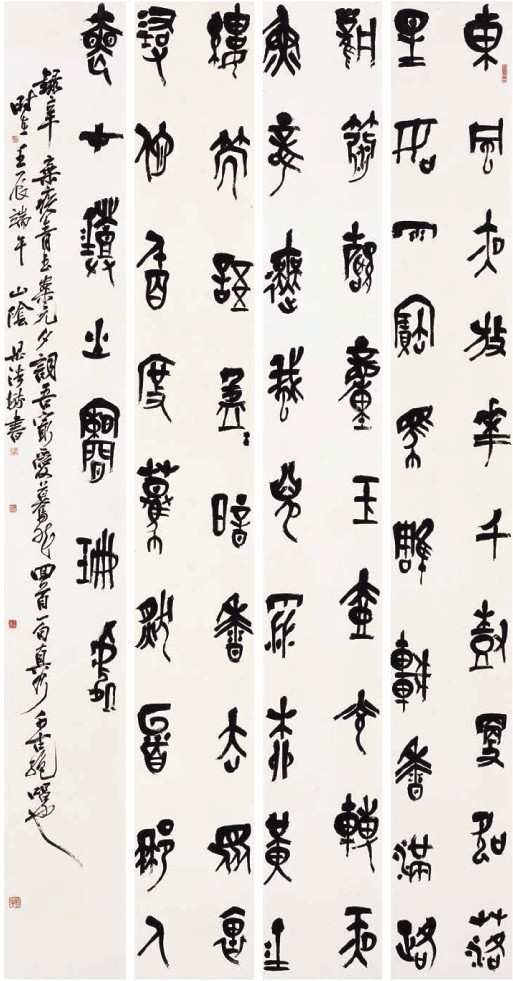 東風夜放華千樹更吹落
星如雨寶馬雕車香滿路
鳳簫聲動玉壺光轉一夜
魚龍舞蛾兒雪柳黃金
縷笑語盈盈暗香去眾裏
尋他千百度驀然回首那人
卻在燈火闌珊處
錄辛棄疾青玉案元夕詞吾最愛驀然回首一句真乃千古絕唱也
時在壬辰端午山陰書